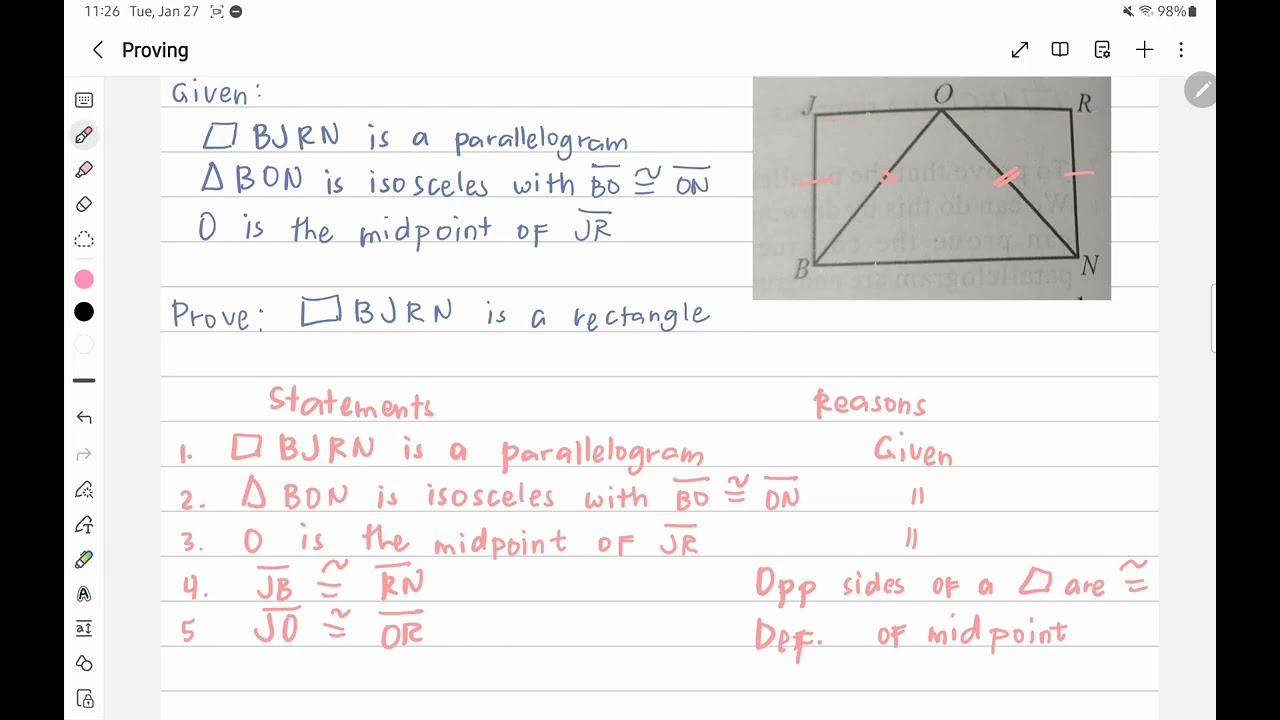 11:26 Tue, Jan 27 98%
Proving
Given:
▱ BJRN is a parallelogram
△ BON is isosceles with B̅O̅ ≅ O̅N̅
O is the midpoint of J̅R̅
Prove: ▱ BJRN is a rectangle
J O R
B N
Statements Reasons
1. ▱ BJRN is a parallelogram Given
2. △ BON is isosceles with B̅O̅ ≅ O̅N̅ "
3. O is the midpoint of J̅R̅ "
4. J̅B̅ ≅ R̅N̅ Opp sides of a ▱ are ≅
5 J̅O̅ ≅ O̅R̅ Def. of midpoint